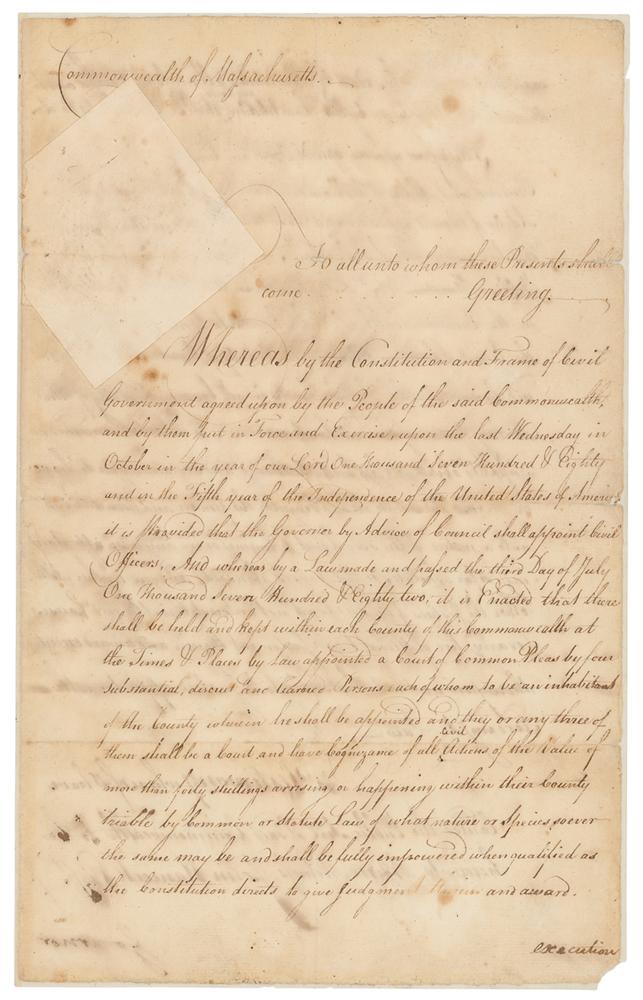 Commonwealth of Massachusetts.
To all unto whom these Presents shall
come . . . . . . . Greeting.
Whereas by the Constitution and Frame of Civil
Government agreed upon by the People of the said Commonwealth,
and by them put in Force and Exercise, upon the last Wednesday in
October in the year of our Lord One Thousand Seven Hundred & Eighty
and in the Fifth year of the Independence of the United States of America
it is Provided that the Governor by Advice of Council shall appoint Civil
Officers, And whereas by a Law made and passed the third Day of July
One Thousand Seven Hundred & Eighty two, it is Enacted that there
shall be held and kept within each County of this Commonwealth at
the Times & Places by Law appointed a Court of Common Pleas by four
substantial, discreet and learned Persons each of whom to be an inhabitant
of the County wherein he shall be appointed and they or any three of
them shall be a Court, and have Cognizance of all civil Actions of the Value of
more than forty shillings arrising, or happening within their County
triable by Common or Statute Law of what nature or Species soever
the same may be and shall be fully empowered when qualified as
the Constitution directs to give Judgment therein and award.
execution